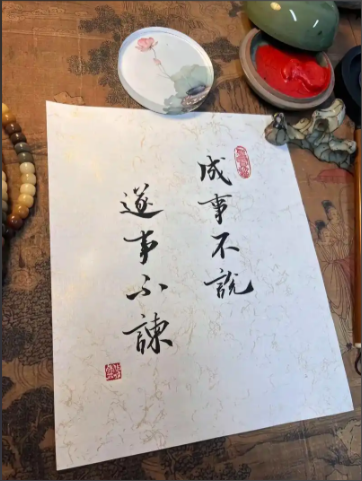 成事不説
遂事不諫